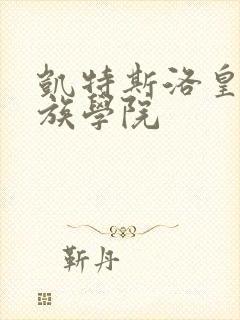 凱特斯洛皇
族學院
靳丹